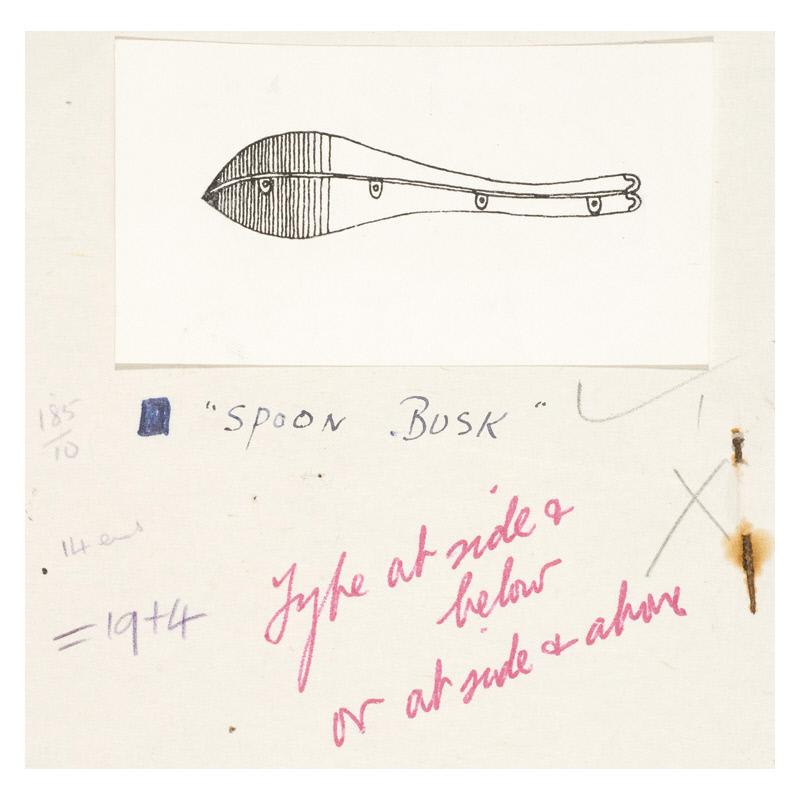 "SPOON BUSK"
185
10
14 ems
=19+4
Type at side &
below
or at side & above